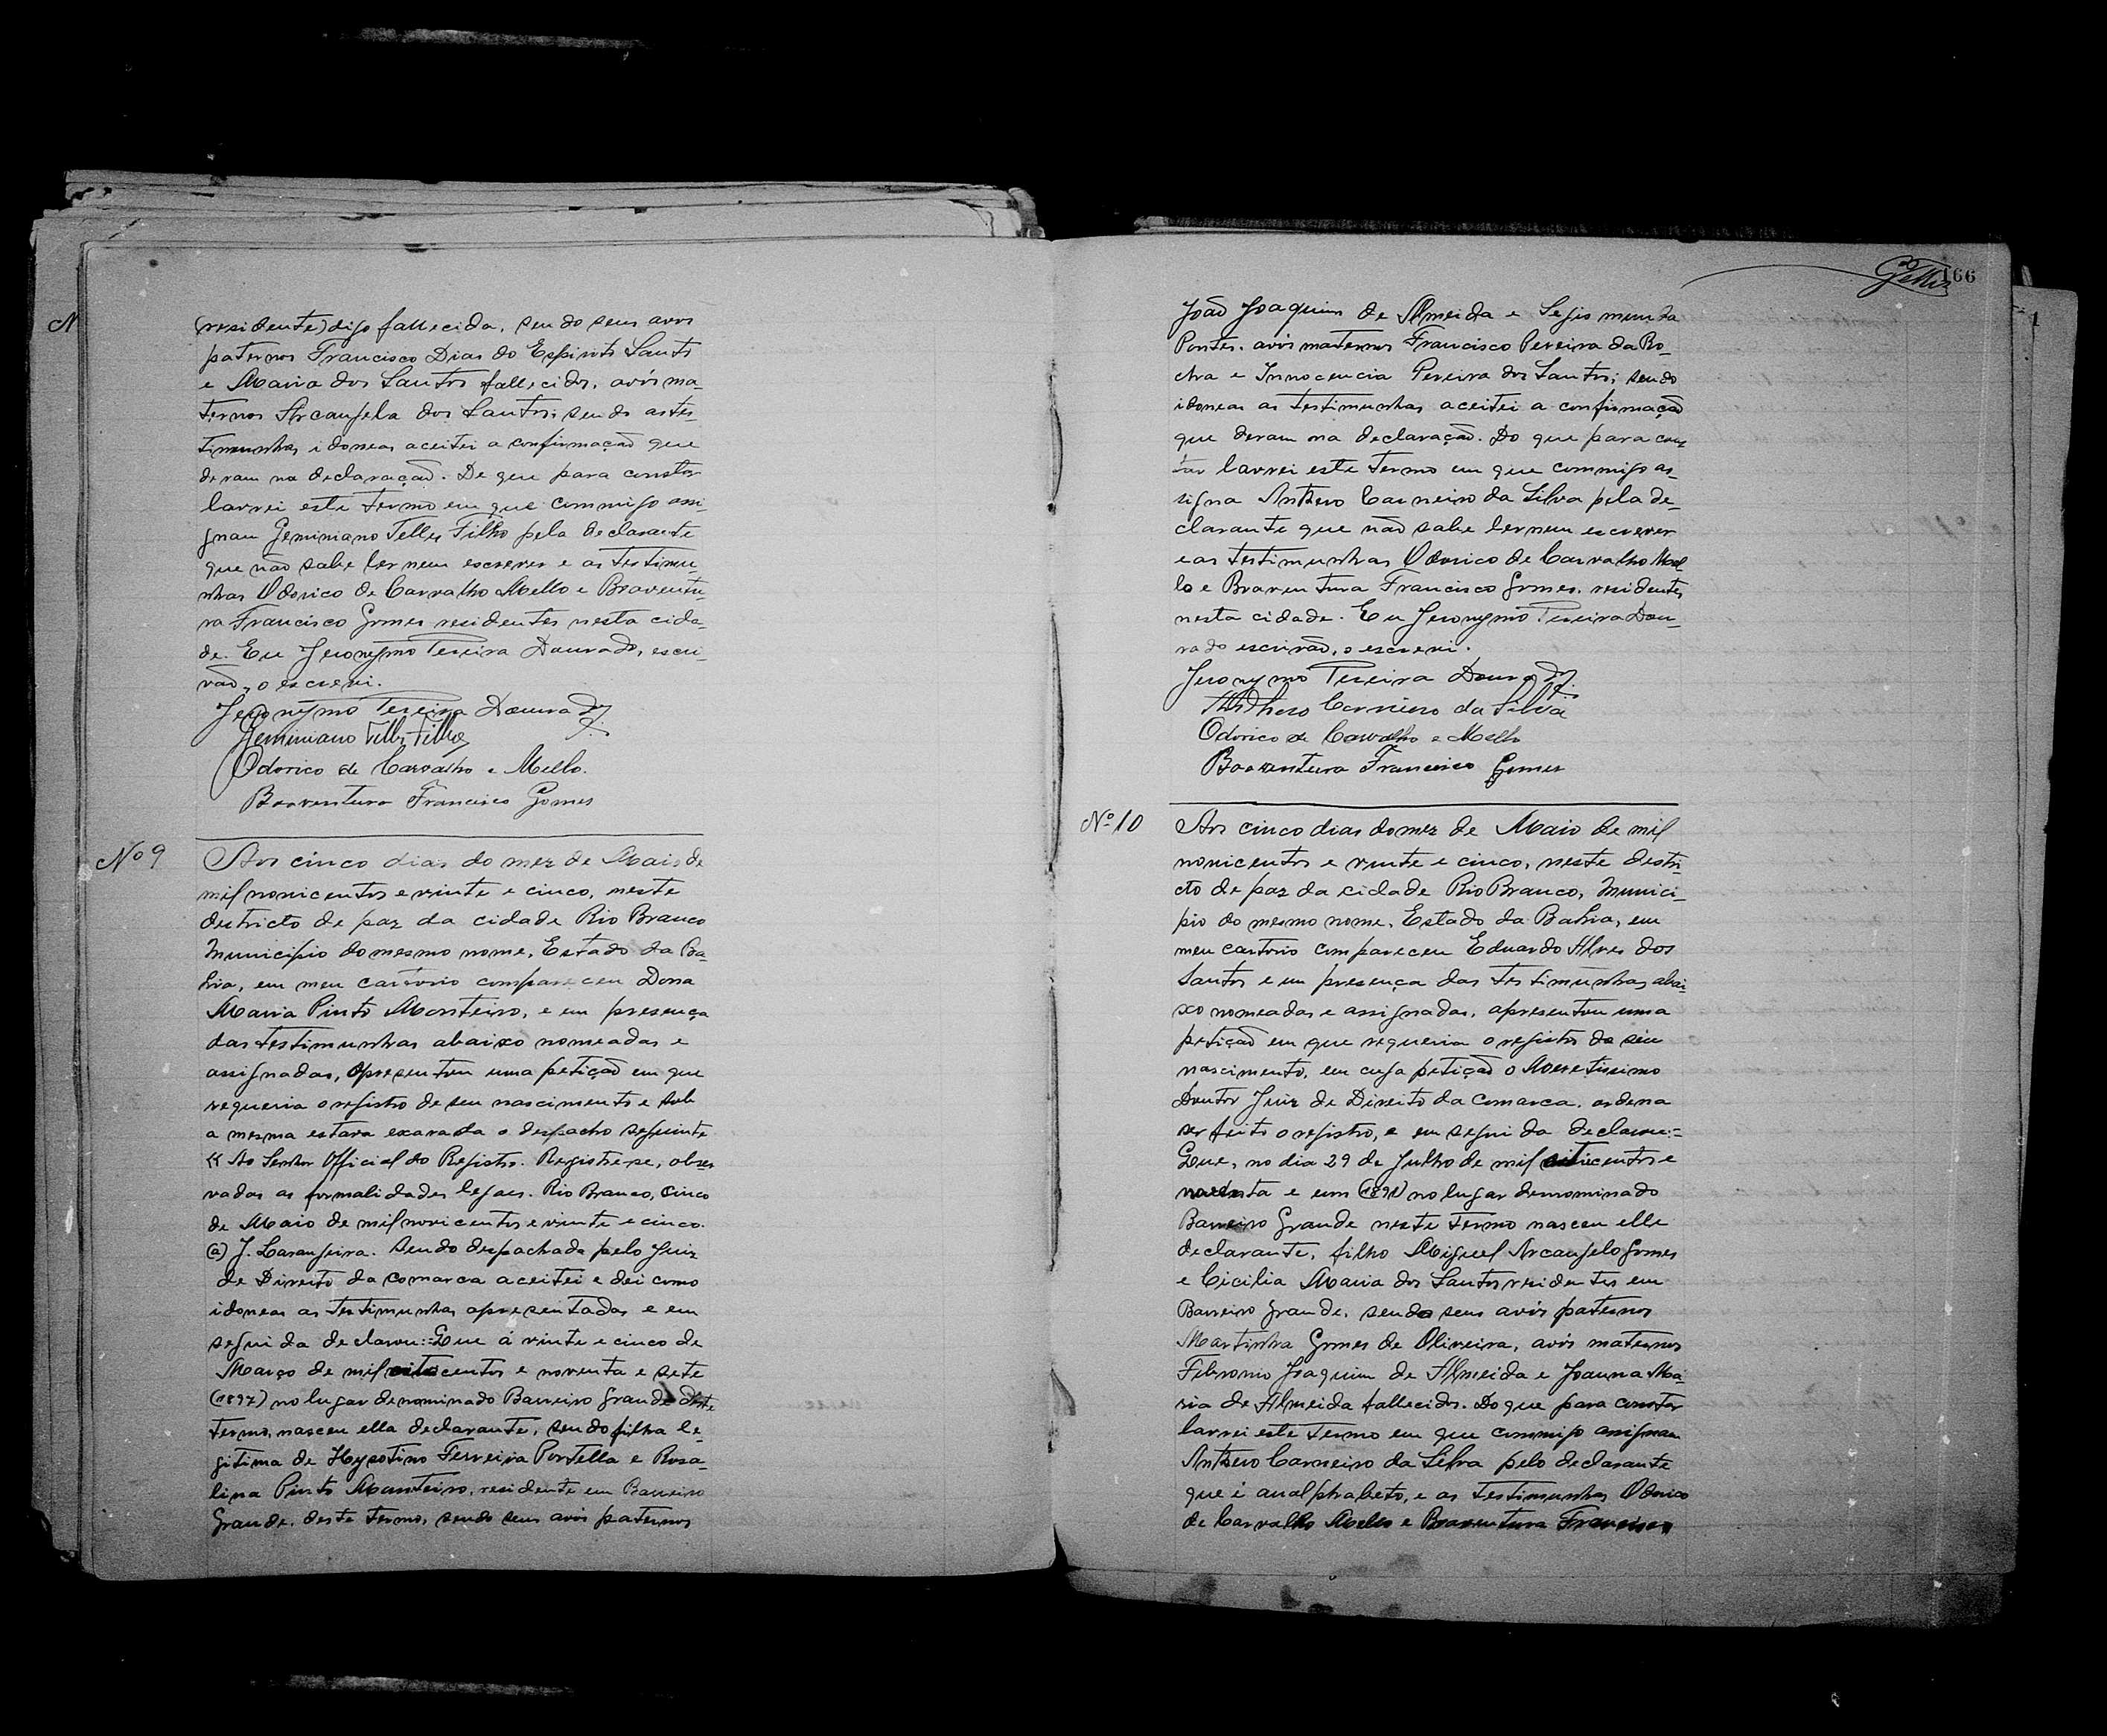 (residente) digo fallecida, sendo seus avos
paternos Francisco Dias do Espirito Santo
e Maria dos Santos fallecidos, avós ma-
ternos Arcanjela dos Santos; sendo as tes-
timunhas idoneas aceitei a confirmação que
deram na declaração. De que para constar
lavrei este termo em que commigo assi-
gnam Geminiano Telles Filho pela declarante
que não sabe ler nem escrever e as testimu-
nhas Odorico de Carvalho Mello e Boaventu-
ra Francisco Gomes residentes nesta cida-
de. Eu Jeronymo Pereira Dourado, escri-
vão, o escrevi.
Jeronymo Pereira Dourado
Geminiano Telles Filho
Odorico de Carvalho e Mello.
Boaventura Francisco Gomes
Nº 9
Aos cinco dias do mez de Maio de
mil novicentos e vinte e cinco, neste
destricto de paz da cidade Rio Branco
Municipio do mesmo nome, Estado da Ba-
hia, em meu cartorio compareceu Dona
Maria Pinto Monteiro, e em presença
das testimunhas abaixo nomeadas e
assignadas, apresentou uma petição em que
requeria o registro de seu nascimento e sob
a mesma estava exarada o despacho seguinte
« Ao Senhor Official do Registro. Registre-se, obser
vadas as formalidades legaes. Rio Branco, cinco
de Maio de mil novicentos e vinte e cinco.
(a) J. Laranjeira. Sendo despachada pelo Juiz
de Direito da Comarca aceitei e dei como
idoneas as testimunhas apresentadas e em
seguida declarou:=Que á vinte e cinco de
Março de mil oitocentos e noventa e sete
(1897) no lugar denominado Barreiro Grande deste
termo, nasceu ella declarante, sendo filha le-
gitima de Ferreira Portella e Rosa-
lina Pinto Monteiro, residente em Barreiro
Grande, deste termo, sendo seus avós paternos
166
João Joaquim de Almeida e Segismunda
Pontes, avós maternos Francisco Pereira da Ro-
cha e Innocencia Pereira dos Santos; sendo
idoneas as testimunhas aceitei a confirmação
que deram na declaração. Do que para cons
tar lavrei este termo em que commigo as-
signa Anthero Carneiro da Silva pela de-
clarante que não sabe ler nem escrever
e as testimunhas Odorico de Carvalho Mel
lo e Boaventura Francisco Gomes, residentes
nesta cidade. Eu Jeronymo Pereira Dou-
rado escrivão, o escrevi.
Jeronymo Pereira Dourado
Anthero Carneiro da Silva
Odorico de Carvalho e Mello
Boaventura Francisco Gomes
Nº 10
Aos cinco dias do mez de Maio de mil
novicentos e vinte e cinco, neste destri-
cto de paz da cidade Rio Branco, Munici-
pio do mesmo nome, Estado da Bahia, em
meu cartorio compareceu Eduardo Alves dos
Santos e em presença das testimunhas abai-
xo nomeadas e assignadas, apresentou uma
petição em que requeria o registro de seu
nascimento, em cuja petição o Meretissimo
Doutor Juiz de Direito da Comarca, ordena
ser feito o registro, e em seguida declarou:=
Que, no dia 29 de Julho de mil oitocentos e
noventa e um (1891) no lugar denominado
Barreiro Grande neste termo nasceu elle
declarante, filho Miguel Arcanjelo Gomes
e Cicilia Maria dos Santos residentes em
Barreiro Grande, sendo seus avós paternos
Martinha Gomes de Oliveira, avós maternos
Febronio Joaquim de Almeida e Joanna Ma-
ria de Almeida fallecidos. Do que para constar
lavrei este termo em que commigo assignam
Anthero Carneiro da Silva pelo declarante
que é analphabeto, e as testimunhas Odorico
de Carvalho Mello e Boaventura Francisco